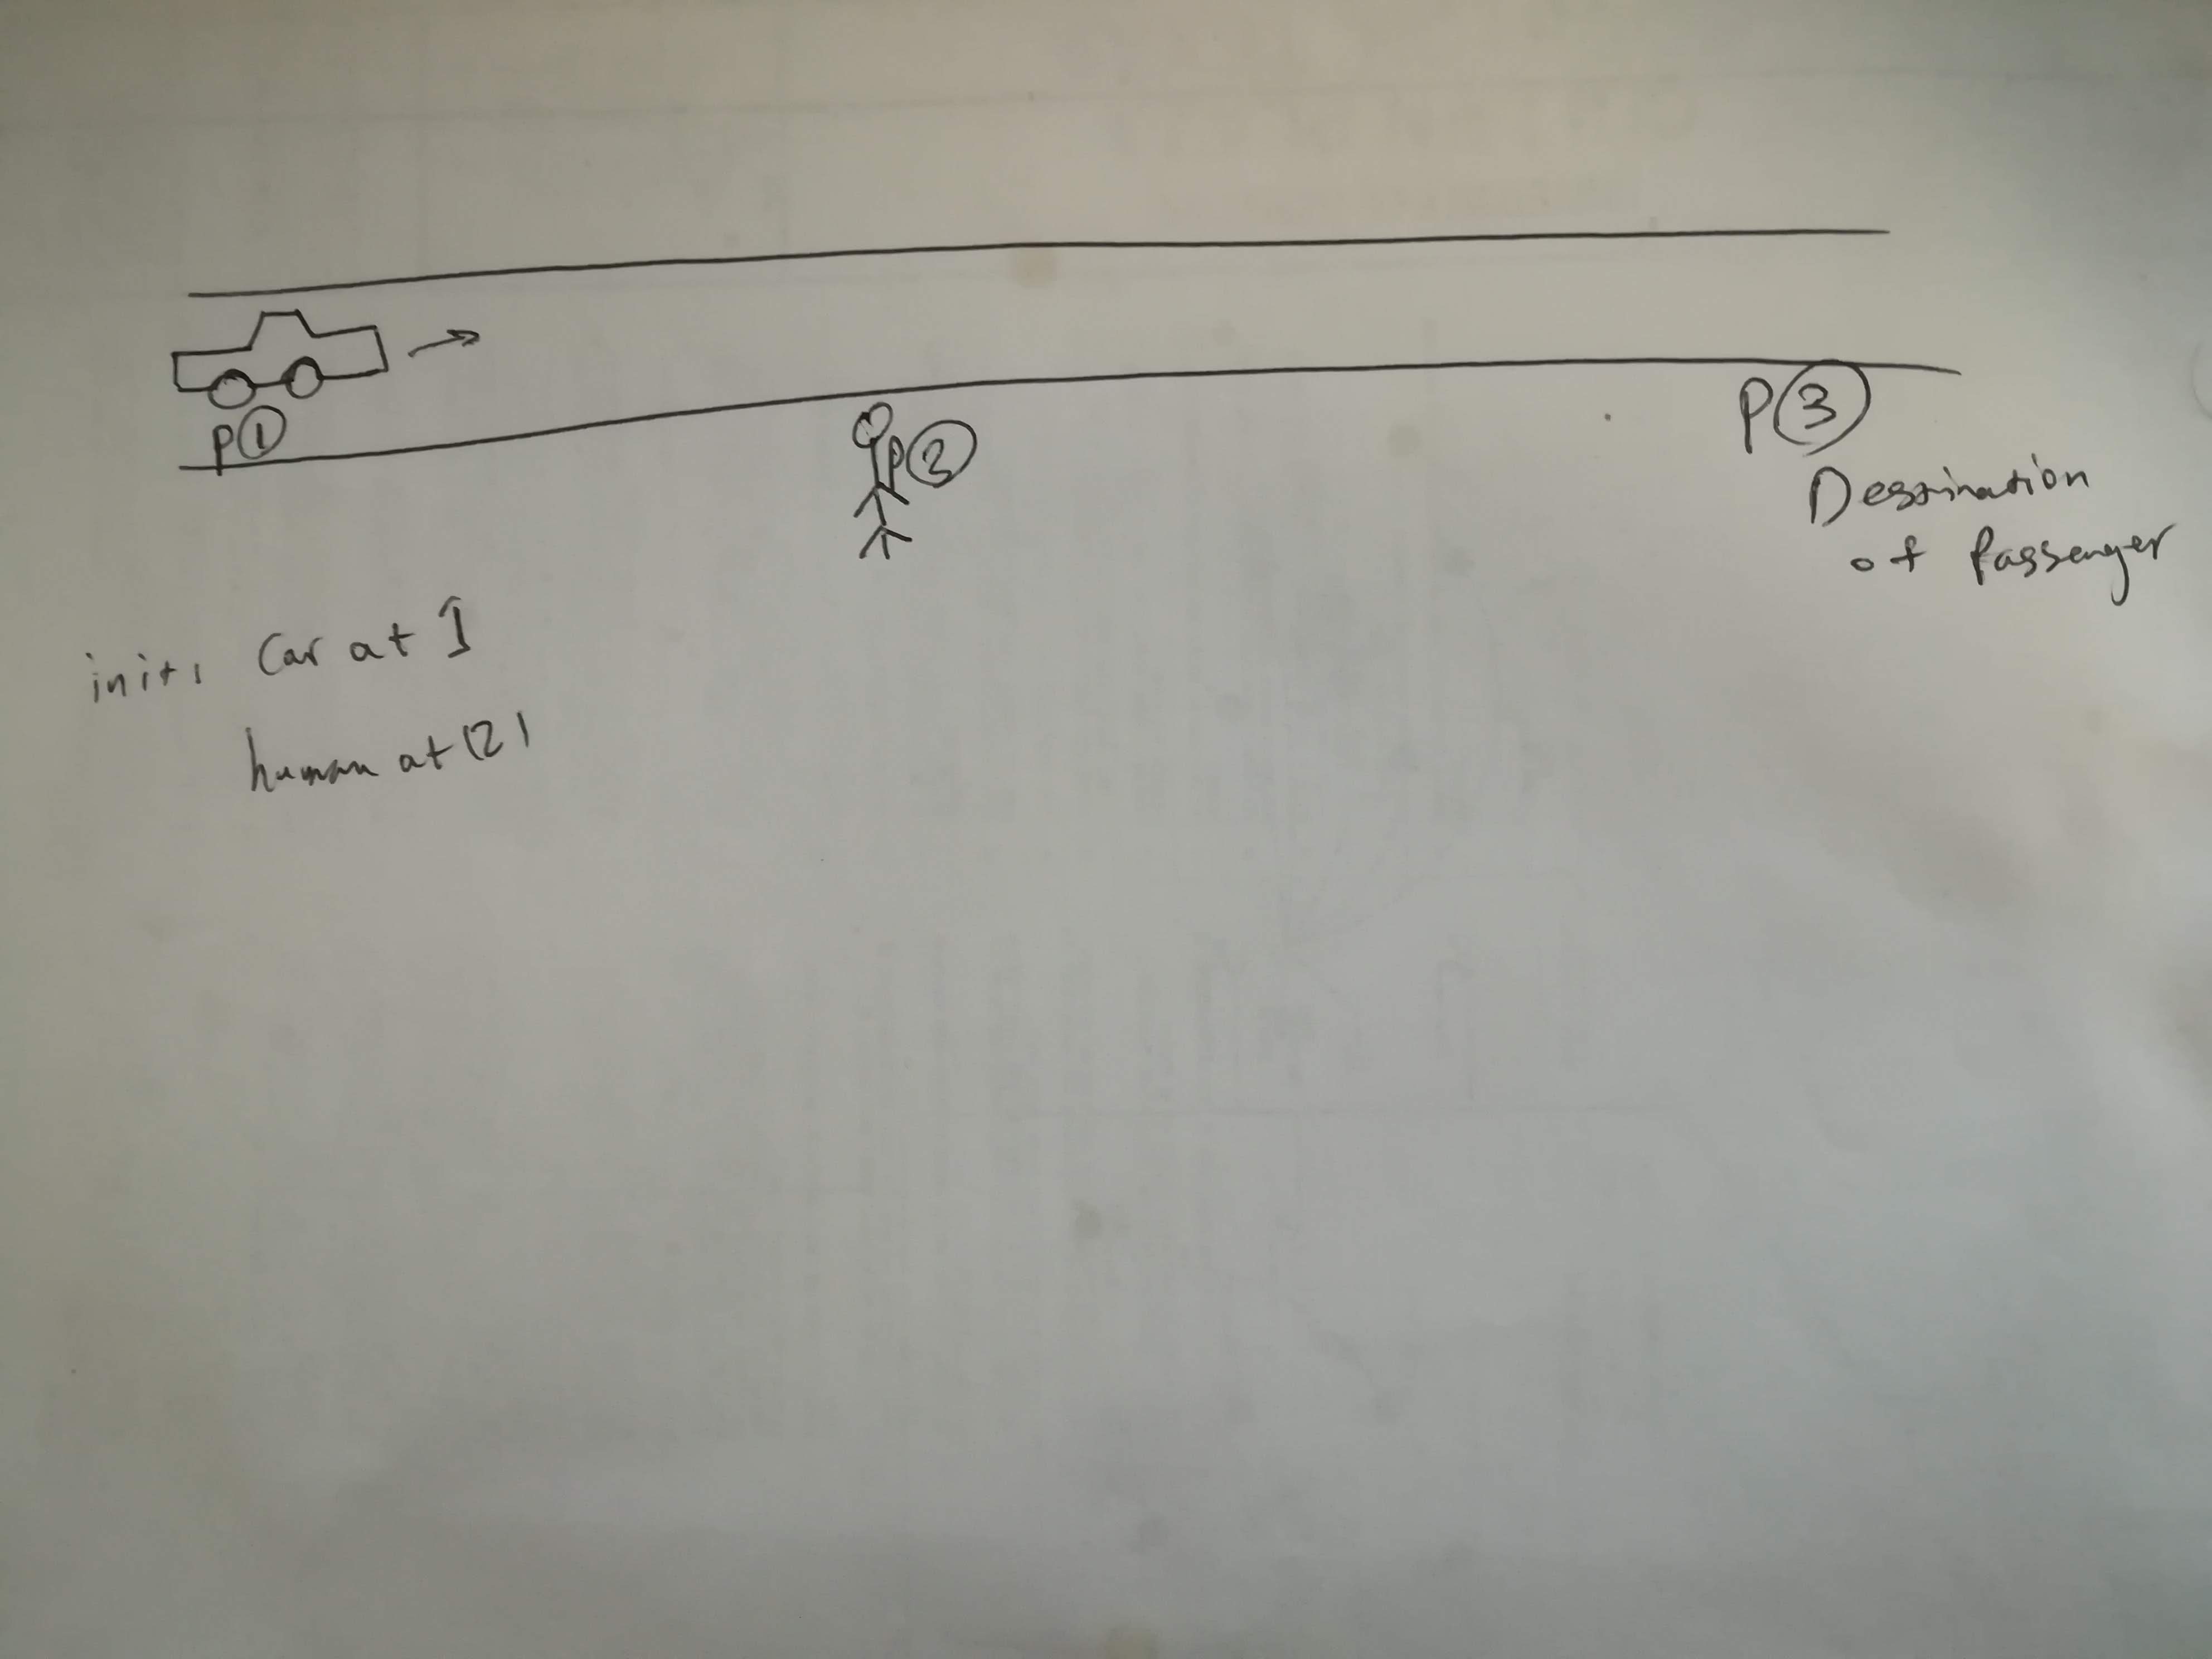 P①
P②
P③
Destination
of Passenger
init: Car at 1
human at (2)